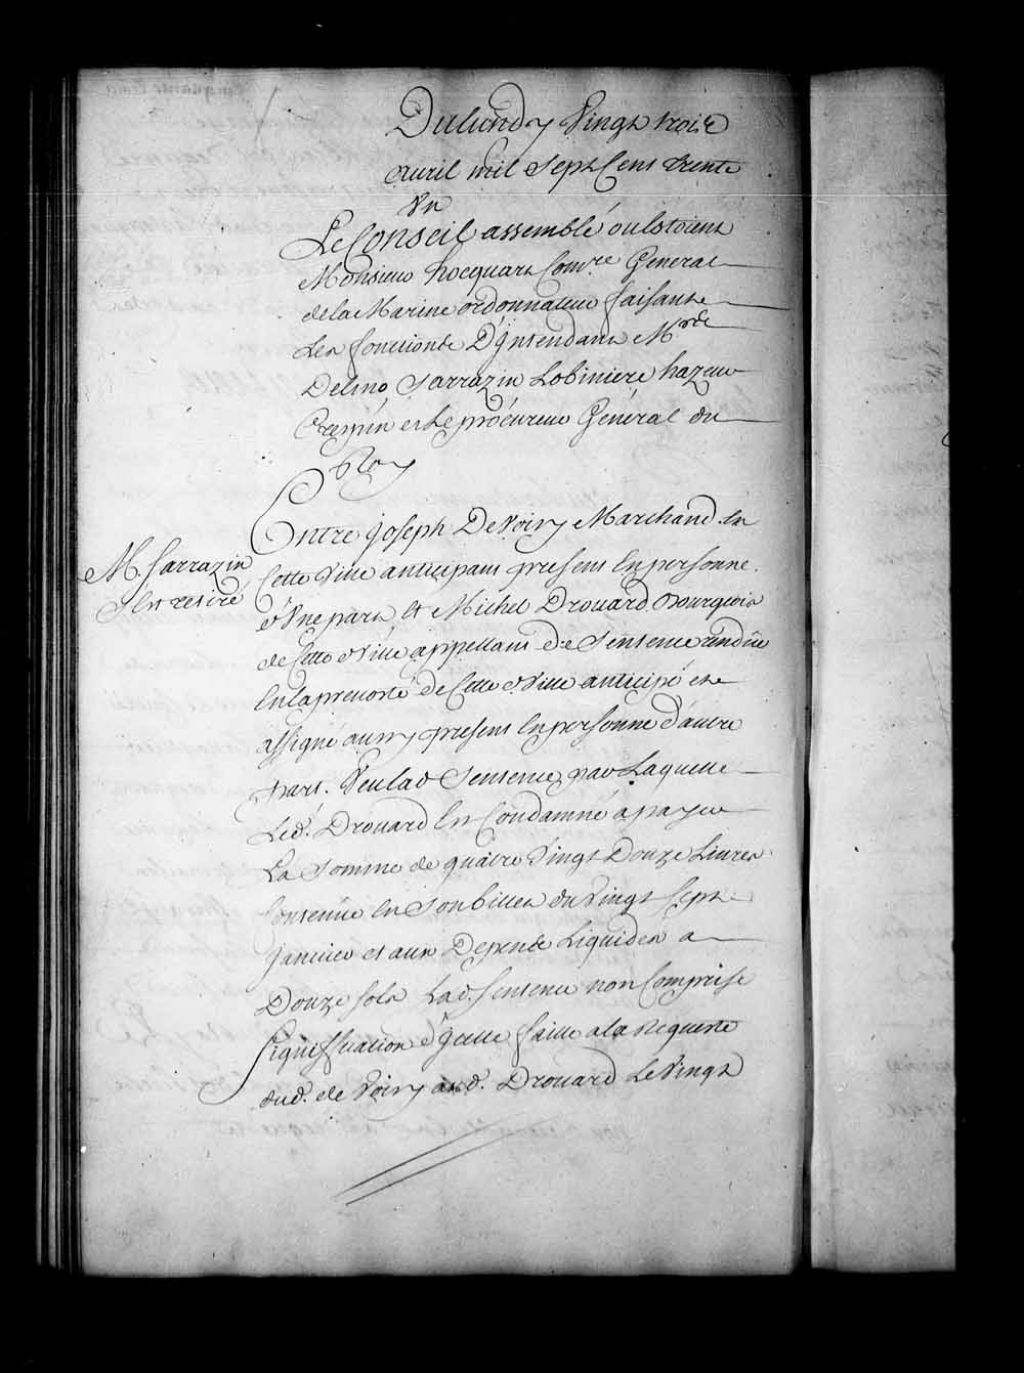 Du lundy Vingt trois
avril mil Sept Cent trente
Un
Le Conseil assemblé ou Estoient
Monsieur hocquart Comre General
de la Marine ordonnateur faisant
Les fonctions D'Intendant Mrs de
Delino Sarrazin Lobiniere hazeur
Crespin et Le procureur Général du
Roy
Entre Joseph De Voisy Marchand En
M. Sarrazin
S'est retiré
Cette Ville anticipant present En personne
d'Une part, Et Michel Drouard Bourgeois
de Cette Ville appellant de Sentence rendüe
En la prevosté de Cette Ville anticipé et
assigné aussy present En personne d'autre
part. Veu lad Sentence par Laquelle
Led. Drouard Est Condamné a payer
La Somme de quatre Vingt Douze Livres
Contenüe En Son billet du Vingt Sept
Janvier et aux Depens Liquidez a
Douze sols Lad. Sentence non Comprise
Signiffication d'Jcelle faitte a la Requeste
dud. de Voisy aud. Drouard Le Vingt